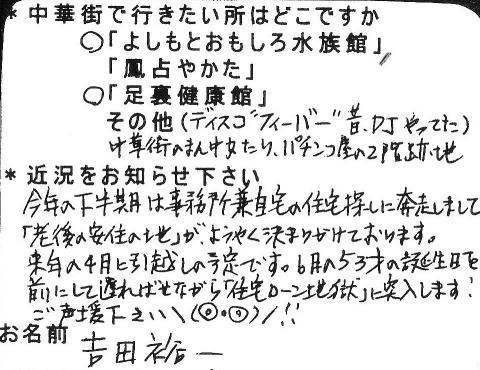 * 中華街で行きたい所はどこですか
○「よしもとおもしろ水族館」
「鳳占やかた」
○「足裏健康館」
その他(ディスコ"フィーバー"昔、DJやってた)
中華街のまん中あたり、パチンコ屋の2階跡地
* 近況をお知らせ下さい
今年の下半期は事務所兼自宅の住宅探しに奔走しまして
「老後の安住の地」が、ようやく決まりかけております。
来年の4月に引越しの予定です。6月の53才の誕生日を
前にして遅ればせながら「住宅ローン地獄」に突入します!
ご声援下さい\(◎。◎)/!!
お名前 吉田裕一